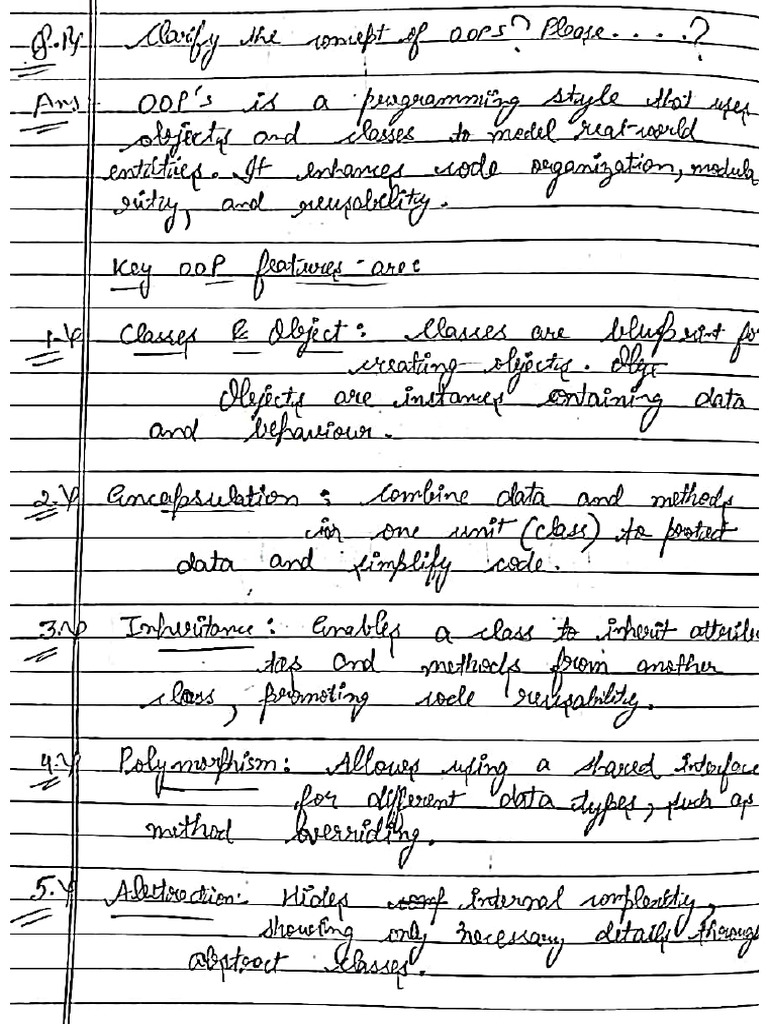 Q.1) Clarify the concept of OOPS? Please....?
Ans OOP's is a programming style that uses
objects and classes to model real-world
entities. It enhances code organization, modula
rity, and reusability.
Key OOP features - are:
1.) Classes & Object: Classes are blueprint for
creating objects. Obje
Objects are instances containing data
and behaviour.
2.) Encapsulation: combine data and methods
in one unit (class) to protect
data and simplify code.
3.) Inheritance: Enables a class to inherit attribu
tes and methods from another
class, promoting code reusability.
4.) Polymorphism: Allows using a shared interface
for different data types, such as
method overriding.
5.) Abstraction: Hides comp internal complexity,
showing only necessary details through
abstract classes.